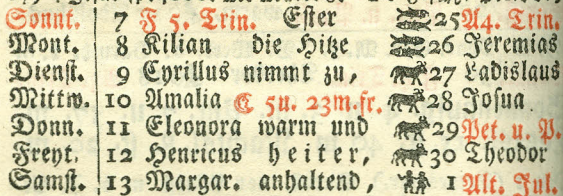 Sonnt. 7 F 5. Trin. Ester 25 A 4. Trin.
Mont. 8 Kilian die Hitze 26 Jeremias
Dienst. 9 Cyrillus nimmt zu, 27 Ladislaus
Mittw. 10 Amalia 5u. 23m. fr. 28 Josua
Donn. 11 Eleonora warm und 29 Pet. u. P.
Freyt. 12 Henricus heiter, 30 Theodor
Samst. 13 Margar. anhaltend, 1 Alt. Jul.